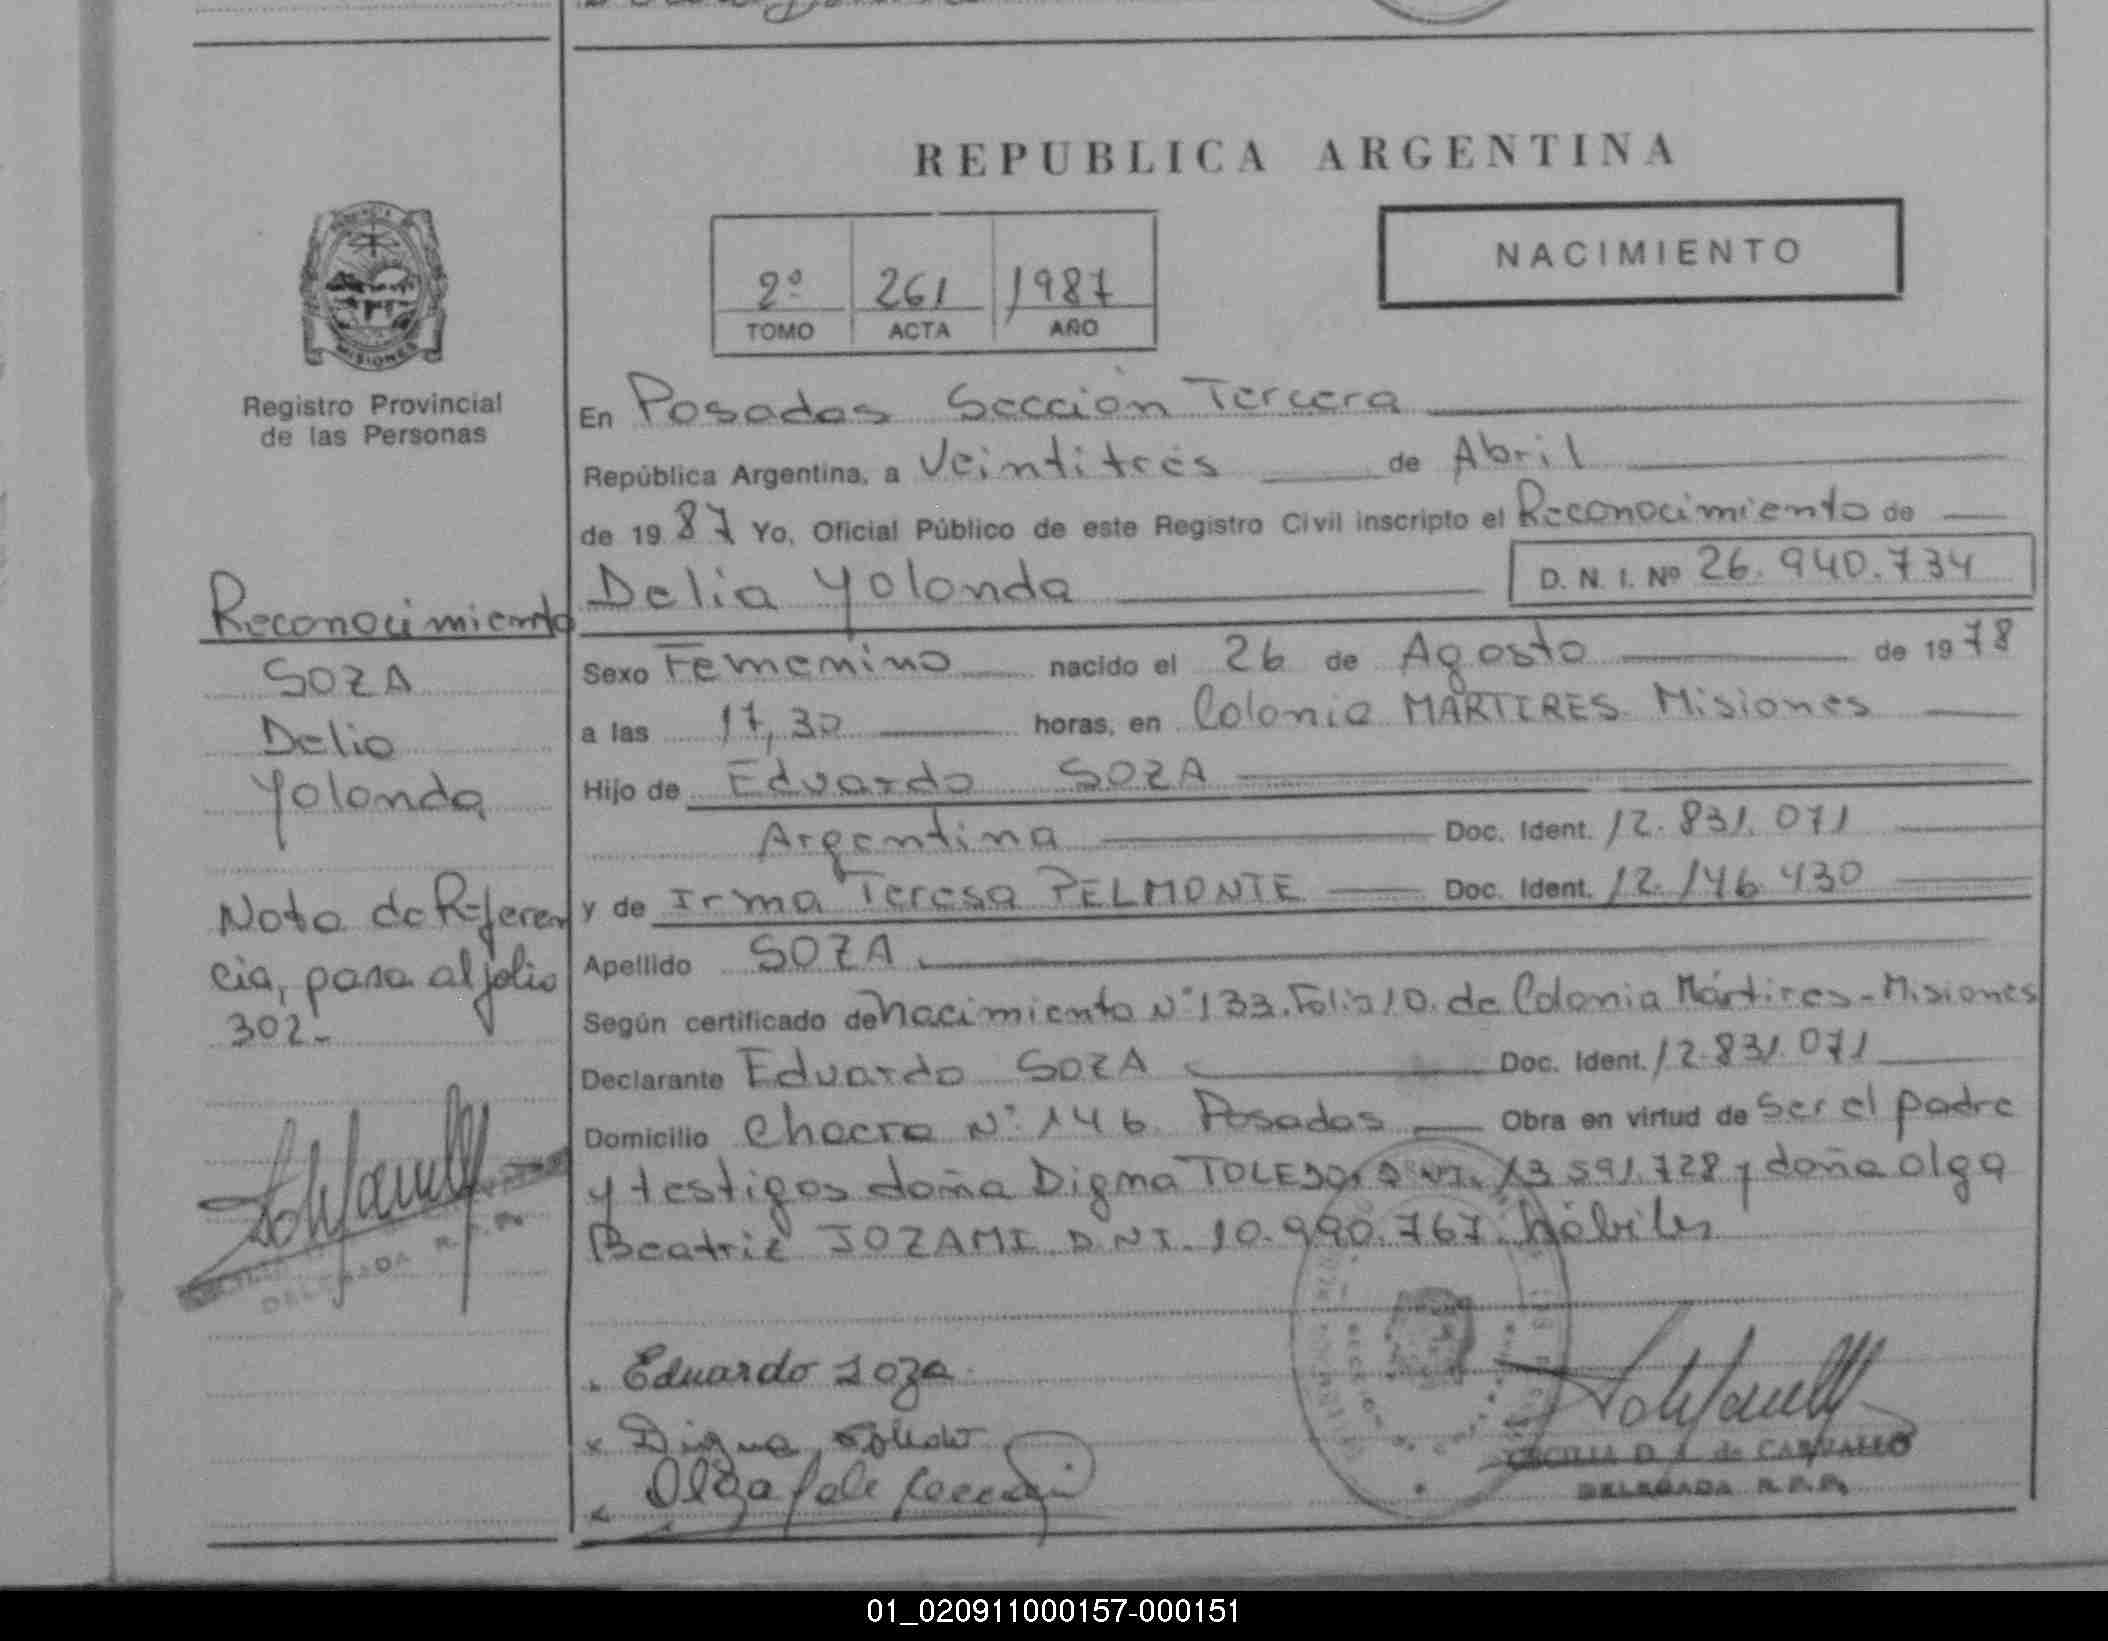 REPUBLICA ARGENTINA
NACIMIENTO
2º 261 1987
TOMO ACTA AÑO
MISIONES
Registro Provincial
de las Personas
En Posadas Sección Tercera
República Argentina, a Veintitrés de Abril
de 1987 Yo, Oficial Público de este Registro Civil inscripto el Reconocimiento de
Delia Yolonda D. N. I. Nº 26.940.734
Sexo Femenino nacido el 26 de Agosto de 1978
a las 17,30 horas, en Colonia MARTIRES Misiones
Hijo de Eduardo SOZA
Argentina Doc. Ident. 12.831.071
y de Irma Teresa PELMONTE Doc. Ident. 12.146.430
Apellido SOZA
Según certificado de Nacimiento Nº 133. Folio 10. de Colonia Mártires - Misiones
Declarante Eduardo SOZA Doc. Ident. 12.831.071
Domicilio Chacra Nº 146 Posadas Obra en virtud de Ser el padre
y testigos doña Digma TOLEDO, D.N.I. 13.591.728 y doña Olga
Beatriz JOZAMI D.N.I. 10.990.767. hábiles
Reconocimiento
SOZA
Delia
Yolonda
Nota de Referen
cia, pasa al folio
302-
DELEGADA R.P.P.
Eduardo Soza
x Digma Toledo
x Olga
CECILIA D. de CARVALLO
DELEGADA R.P.P.
01_020911000157-000151